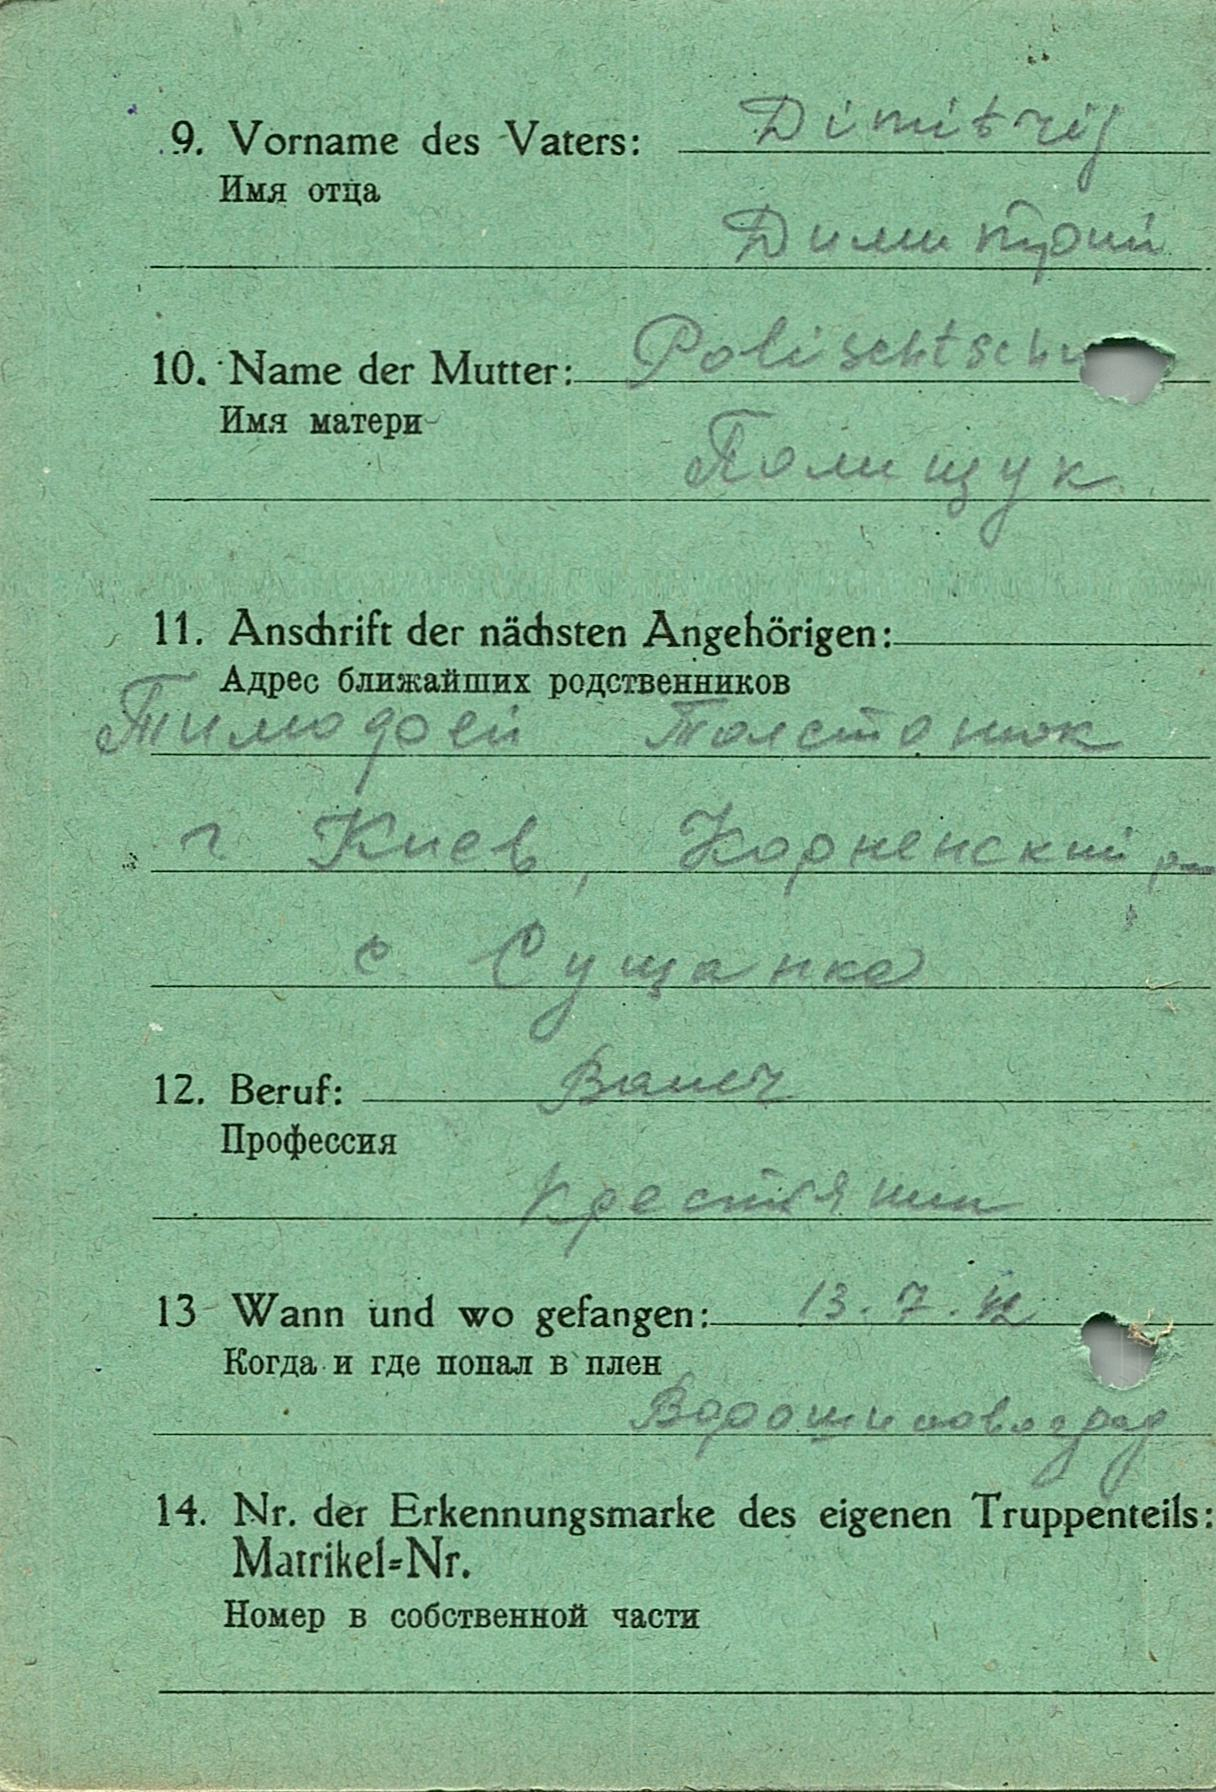 9. Vorname des Vaters: Dimitrij
Имя отца
Димитрий
10. Name der Mutter: Polischtschu
Имя матери
Полищук
11. Anschrift der nächsten Angehörigen:
Адрес ближайших родственников
Тимофей Толстонюк
г Киев, Корненский
с. Сущанка
12. Beruf: Bauer
Профессия
Крестьянин
13 Wann und wo gefangen: 13.7.42
Когда и где попал в плен
Ворошиловоград
14. Nr. der Erkennungsmarke des eigenen Truppenteils:
Matrikel=Nr.
Номер в собственной части